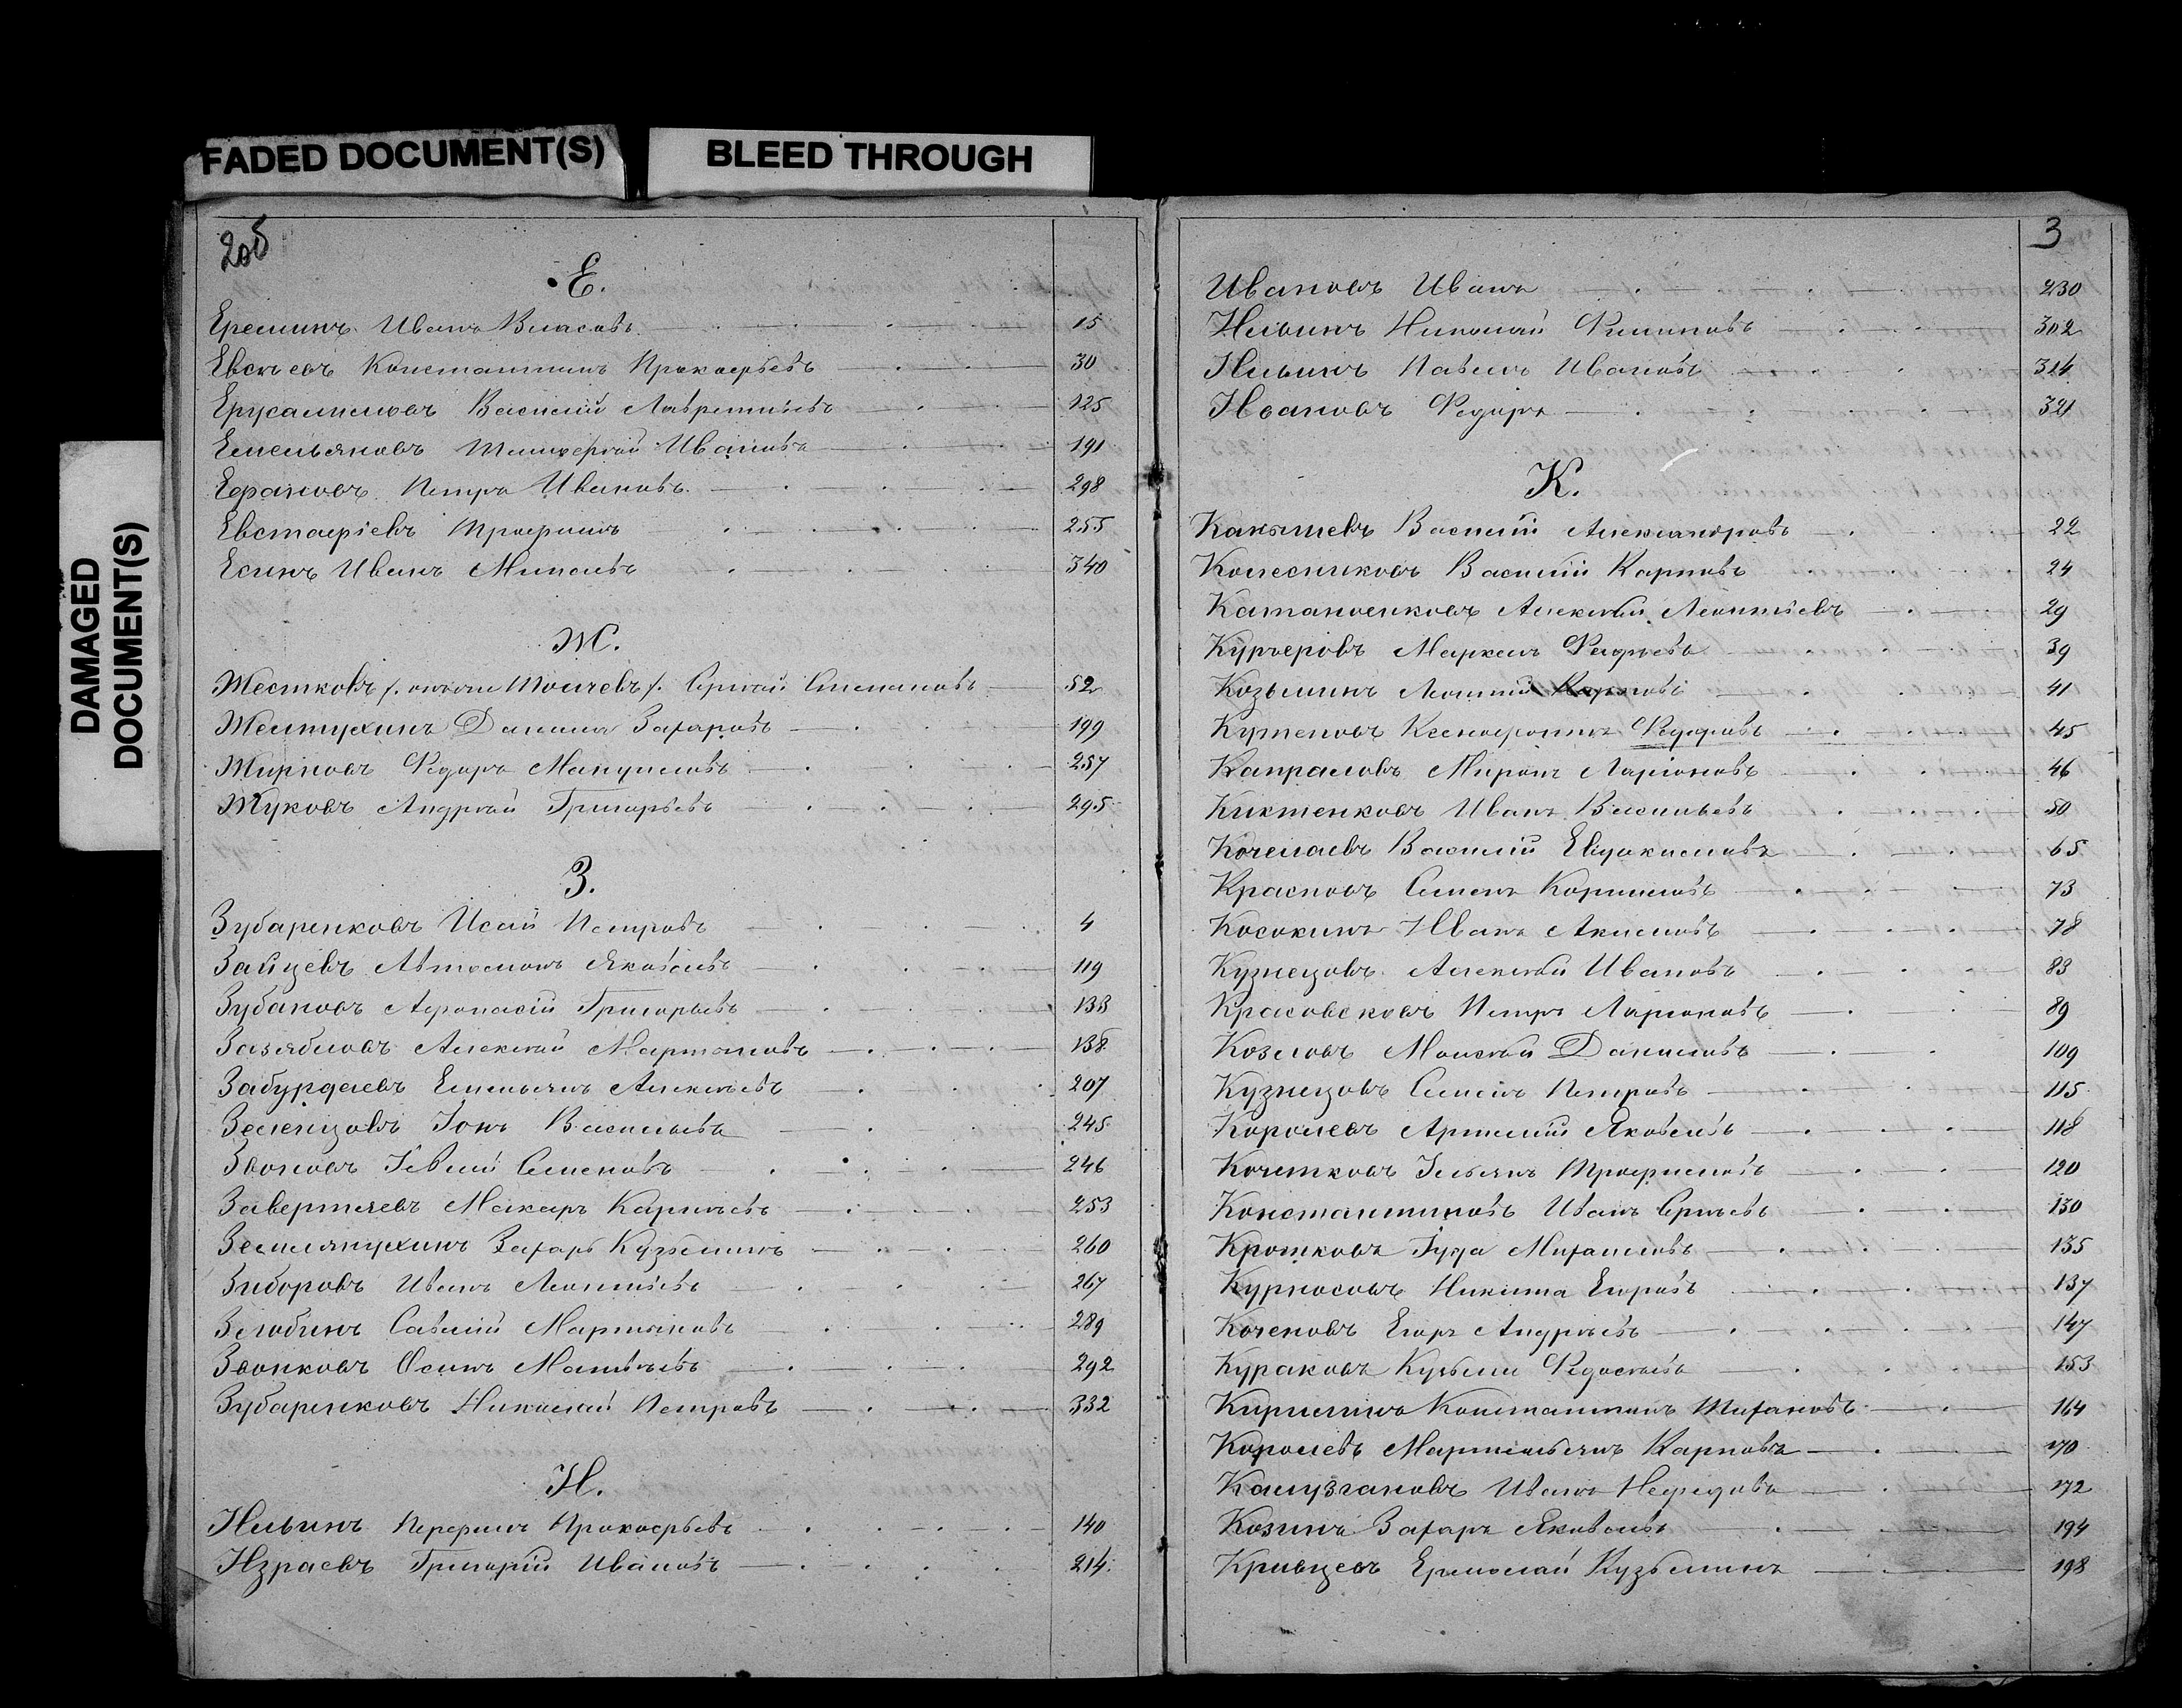 FADED DOCUMENT(S)
BLEED THROUGH
DAMAGED
DOCUMENT(S)
2об
Е.
Ереминъ Иванъ Власовъ 15
Евсѣевъ Константинъ Прокофьевъ 30
Ерусалимовъ Василій Лаврентьевъ 125
Емельяновъ Тимофей Ивановъ 191
Ефановъ Петръ Ивановъ 298
Евстафіевъ Трофимъ 255
Есинъ Иванъ 340
Ж.
Жестковъ Сергей Степановъ 52
Желтухинъ Данила Захаровъ 199
Жирновъ Федоръ Мануиловъ 257
Жуковъ Андрей Григорьевъ 295
З.
Зубаренковъ Исай Петровъ 4
Зайцевъ Автомонъ Яковлевъ 119
Зубановъ Афонасій Григорьевъ 133
Зазябловъ Алексей Мартыновъ 138
Забурдаевъ Емельянъ Алексѣевъ 207
Зеленцовъ Іонъ Васильевъ 245
Звоновъ Семеновъ 246
Завертяевъ Макаръ Карпѣевъ 253
Землянухинъ Захаръ Кузьминъ 260
Зиборовъ Иванъ Леонтьевъ 267
Злобинъ Савелій Мартыновъ 289
Звонковъ Осипъ Матвѣевъ 292
Зубаренковъ Николай Петровъ 332
И.
Ильинъ Перфилъ Прокофьевъ 140
Израевъ Григорій Ивановъ 214
3
Ивановъ Иванъ 230
Ильинъ Николай Филиповъ 302
Ильинъ Павелъ Ивановъ 314
Ивановъ Федоръ 321
К.
Василій Александровъ 22
Колесниковъ Василій Карповъ 24
Катасонковъ Алексей Леонтьевъ 29
Маркелъ 39
Козьминъ Леонтій 41
Кутеповъ Ксенофонтъ Федоровъ 45
Капраловъ Миронъ Ларіоновъ 46
Киктенковъ Иванъ Васильевъ 50
Кочелаевъ Василій Евдокимовъ 65
Красновъ Семенъ Корниловъ 73
Косокинъ Иванъ Акимовъ 78
Кузнецовъ Алексей Ивановъ 83
Красовсковъ Петръ Ларионовъ 89
Козловъ Моисей Даниловъ 109
Кузнецовъ Семенъ Петровъ 115
Королевъ Артемій Яковлевъ 118
Кочетковъ Ульянъ Трофимовъ 120
Константиновъ Иванъ Сергѣевъ 130
Кротковъ Іуда Михаиловъ 135
Курносовъ Никита Егоровъ 137
Коченовъ Егоръ Андрѣевъ 147
Кураковъ Кузьма Федосѣевъ 153
Кирилинъ Константинъ 164
Королевъ Мартемьянъ Карповъ 170
Калузгановъ Иванъ Нефедовъ 172
Козинъ Захаръ Яковлевъ 194
Кривцевъ Ермолай Кузьминъ 198